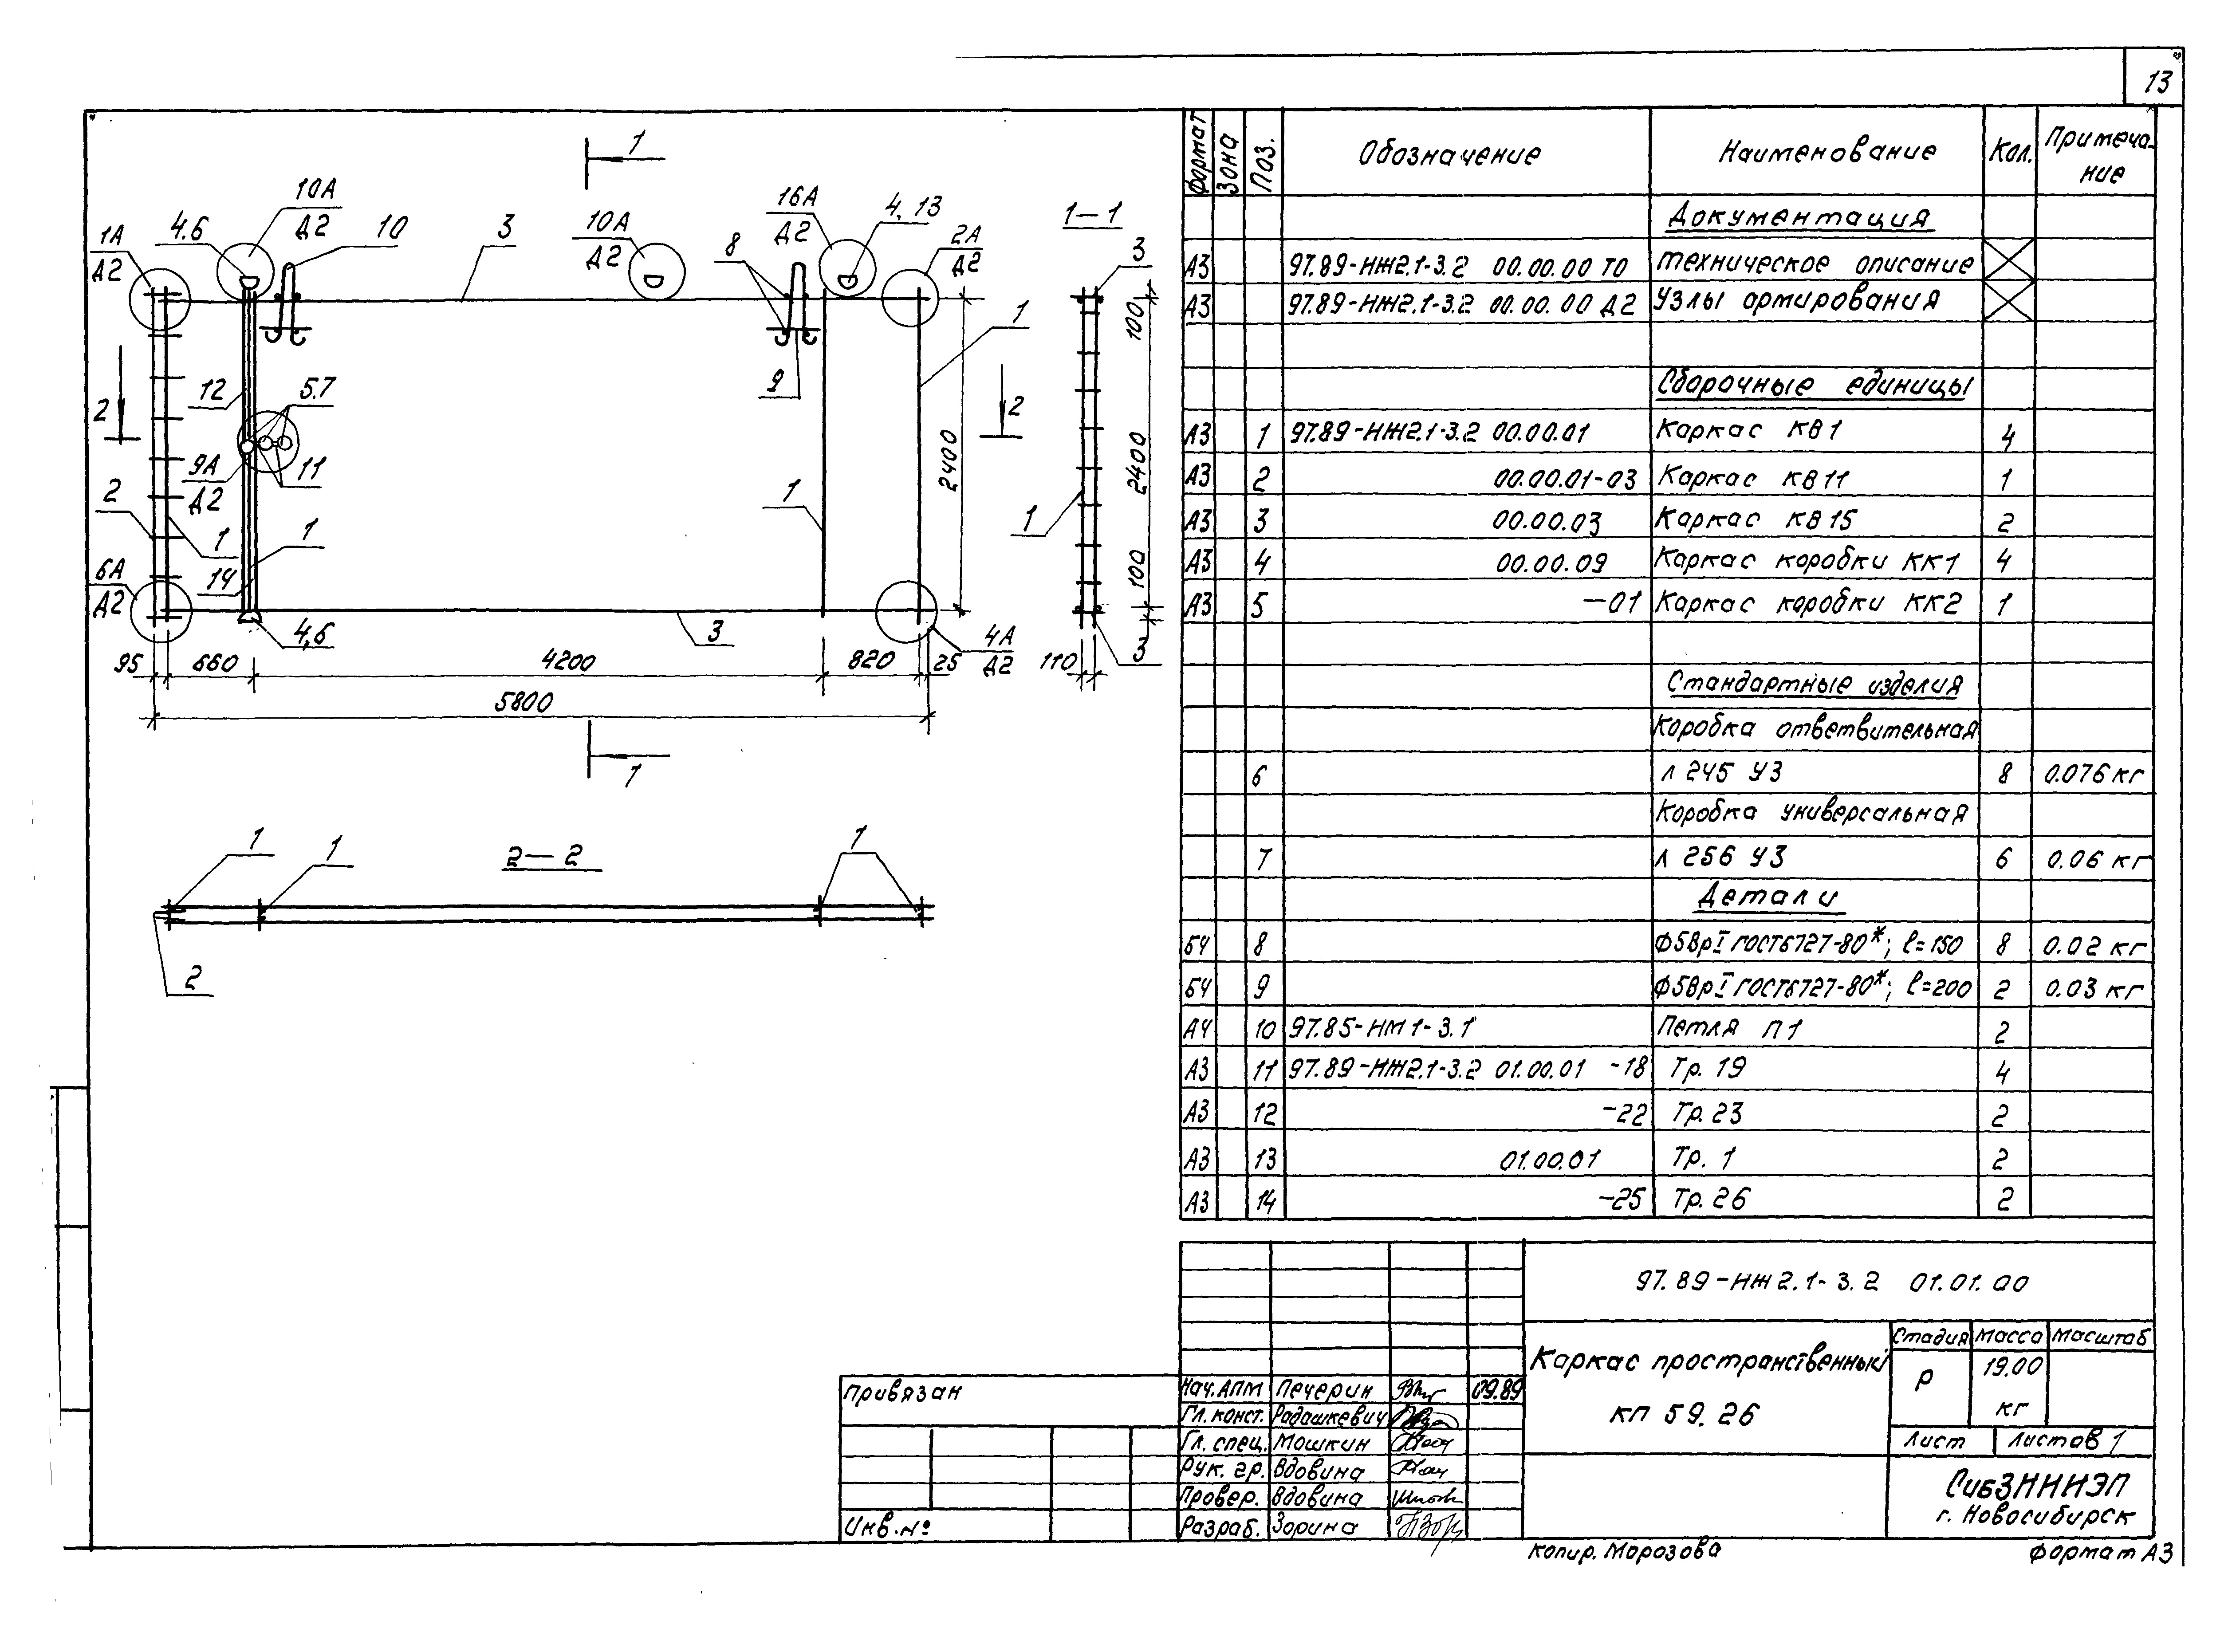 13
1
10А
Д2
16А
Д2
4,13
1А
Д2
4.6
10
3
10А
Д2
8
2А
Д2
1-1
3
1
100
2
12
5.7
9
2
2400
2400
9А
Д2
11
2
1
1
1
1
6А
Д2
14
100
4,6
3
4А
Д2
3
95
660
4200
820
25
110
5800
1
1
1
2-2
1
2
Формат
Зона
Поз.
Обозначение
Наименование
Кол.
Примеча-
ние
Документация
А3 97.89-НЖ2.1-3.2 00.00.00 ТО Техническое описание
А3 97.89-НЖ2.1-3.2 00.00.00 Д2 Узлы армирования
Сборочные единицы
А3 1 97.89-НЖ2.1-3.2 00.00.01 Каркас КВ1 4
А3 2 00.00.01-03 Каркас КВ11 1
А3 3 00.00.03 Каркас КВ15 2
А3 4 00.00.09 Каркас коробки КК1 4
А3 5 -01 Каркас коробки КК2 1
Стандартные изделия
Коробка ответвительная
6 Л 245 У3 8 0.076 кг
Коробка универсальная
7 Л 256 У3 6 0.06 кг
Детали
БЧ 8 Ф5ВрI ГОСТ6727-80*; ℓ=150 8 0.02 кг
БЧ 9 Ф5ВрI ГОСТ6727-80*; ℓ=200 2 0.03 кг
А4 10 97.85-НМ1-3.1 Петля П1 2
А3 11 97.89-НЖ2.1-3.2 01.00.01 -18 Тр. 19 4
А3 12 -22 Тр. 23 2
А3 13 01.00.01 Тр. 1 2
А3 14 -25 Тр. 26 2
97.89-НЖ2.1-3.2 01.01.00
Каркас пространственный
КП 59.26
Стадия Масса Масштаб
Р 19.00
кг
Лист Листов 1
СибЗНИИЭП
г. Новосибирск
Привязан
Инв.№
Нач.АПМ Печерин 09.89
Гл. конст. Радашкевич
Гл. спец. Мошкин
Рук. гр. Вдовина
Провер. Вдовина
Разраб. Зорина
Копир. Морозова
Формат А3